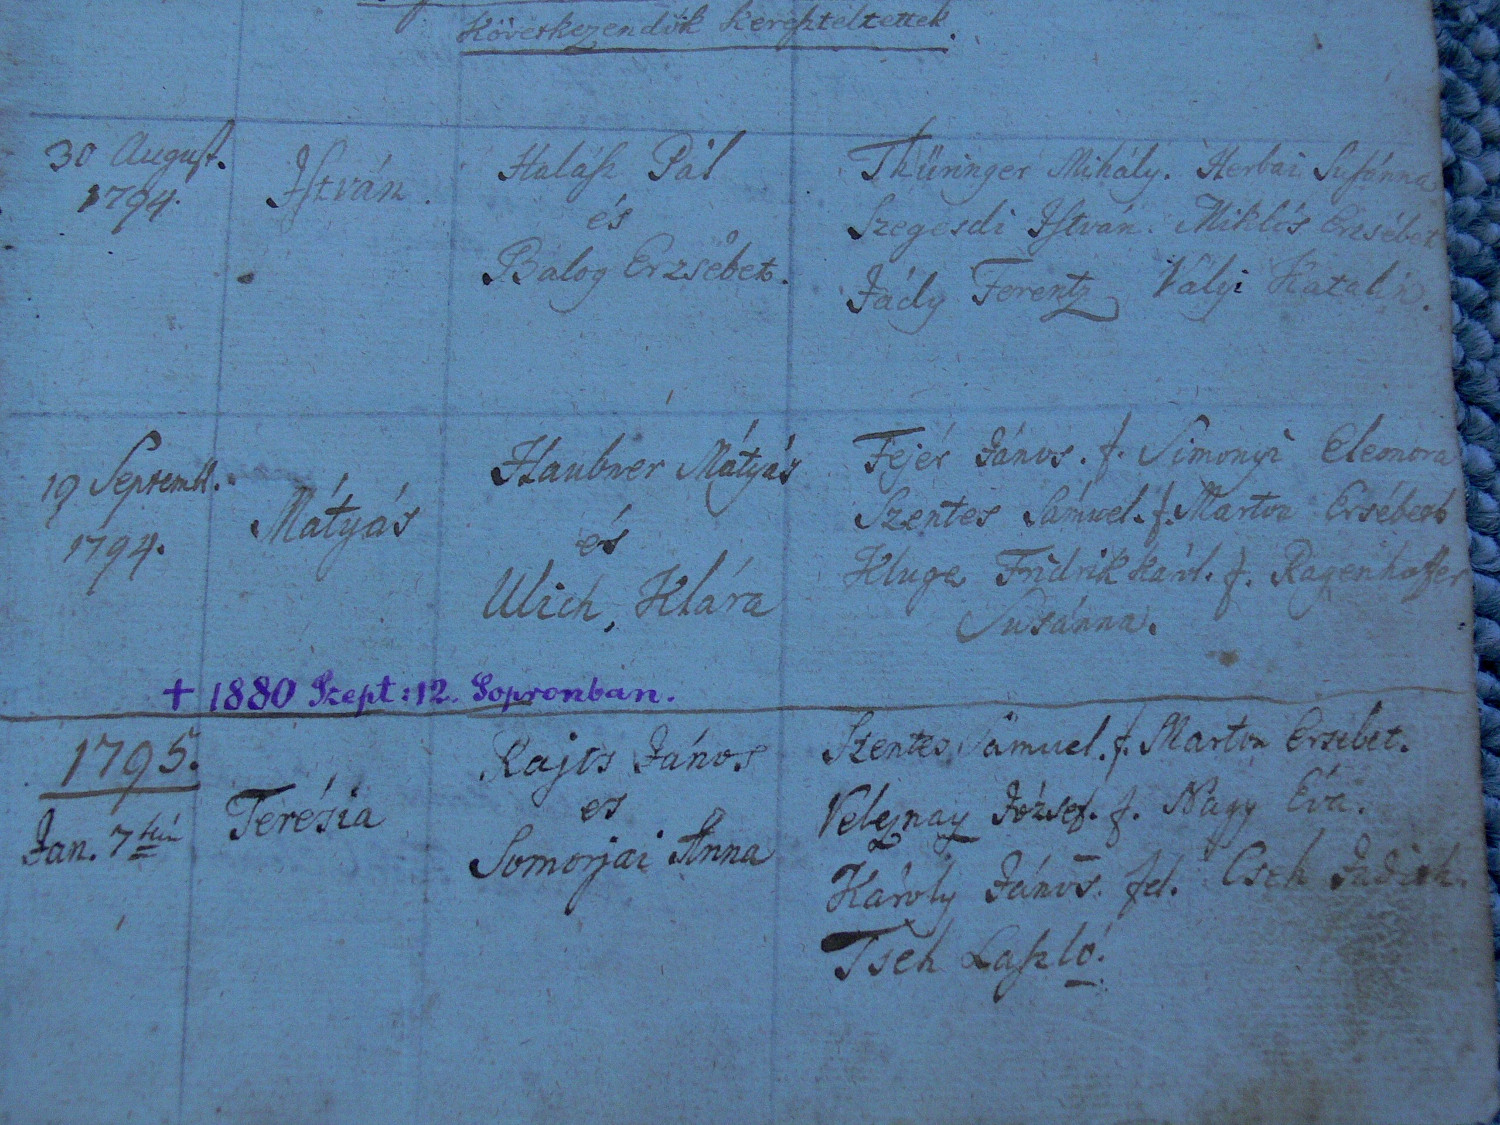 Következendők Kereszteltettek.
30 August. 1794.
István.
Halász Pál
és
Balog Erzsébet.
Thüringer Mihály. Herbai Susánna
Szegesdi István. Miklós Erzsébet
Jády Ferentz Vályi Katalin.
19 Septembr. 1794.
Mátyás
Haubner Mátyás
és
Ulich, Klára
Fejér János. f. Simonyi Eleonora
Szentes Sámuel. f. Marton Ersébeth
Kluge Fridrik Károl. f. Ragenhoffer
Susánna.
+ 1880 Szept: 12. Sopronban.
1795.
Jan. 7
Terésia
Rajts János
es
Somorjai Anna
Szentes Sámuel. f. Marton Ersebet.
Velejnay József. f. Nagy Éva.
Károly János. fel. Cseh Judith.
Tseh László.